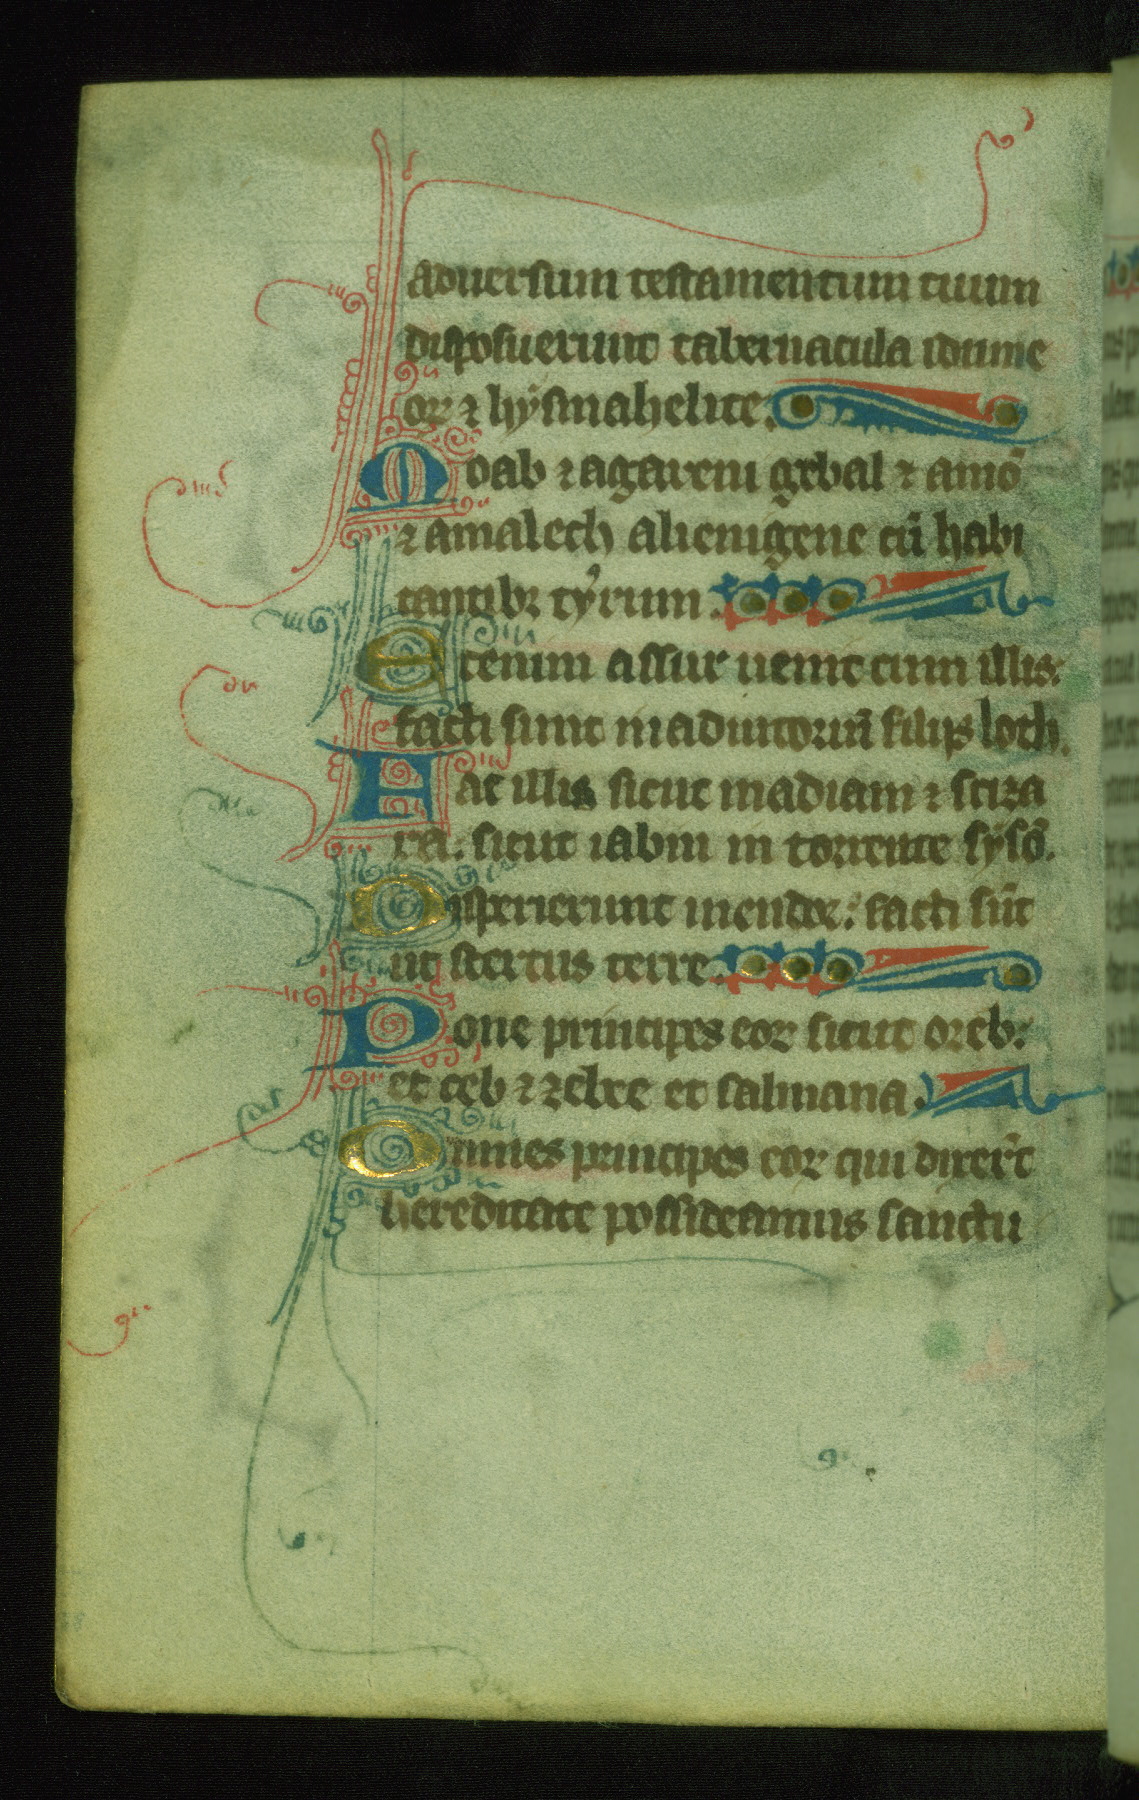 aduersum testamentum tuum
disposuerunt tabernacula idume
oꝝ ⁊ hysmahelite:
Moab ⁊ agareni gebal ⁊ amō
⁊ amalech alienigene cū habi
tantibꝫ tyrum.
Etenim assur uenit cum illis:
facti sunt in adiutoriū filijs loth.
Fac illis sicut madiam ⁊ sciza
ra. sicut iabin in torrente sysō.
Disperierunt inendor: facti sūt
ut stercus terre.
Pone principes eoꝝ sicut oreb:
et ceb ⁊ zebee et salmana.
Omnes principes eoꝝ qui dixer̄t
hereditate possideamus sanctu